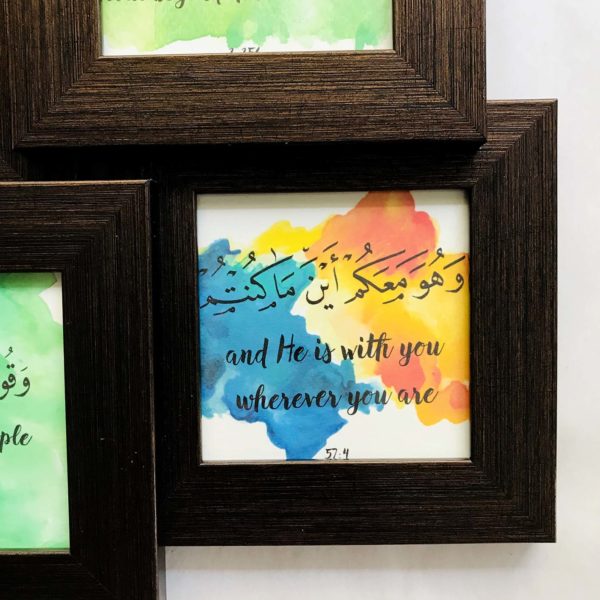 وَهُوَ مَعَكُمْ أَيْنَ مَا كُنْتُمْ
and He is with you
wherever you are
57:4
وَقُو
ple